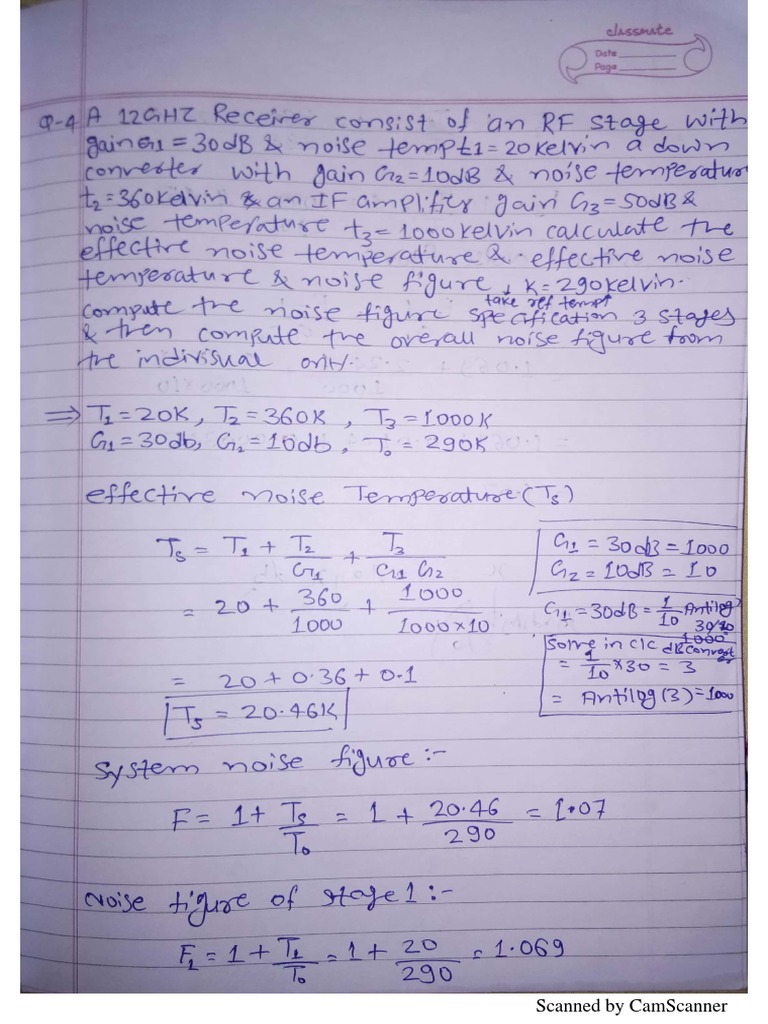 classmate
Date
Page
Q-4 A 12GHZ Receiver consist of an RF stage with
gain G1 = 30dB & noise temp t1 = 20 kelvin a down
converter with gain G2 = 10dB & noise temperatur
t2 = 360 kelvin & an IF amplifier gain G3 = 50dB &
noise temperature t3 = 1000 kelvin calculate the
effective noise temperature & effective noise
temperature & noise figure, K = 290 kelvin.
take ref tempt
compute the noise figure specification 3 stages
& then compute the overall noise figure from
the indivisual only.
⇒ T1 = 20K, T2 = 360K, T3 = 1000K
G1 = 30db, G2 = 10db, To = 290K
effective noise Temperature (Ts)
Ts = T1 + T2/G1 + T3/G1 G2
G1 = 30dB = 1000
G2 = 10dB = 10
= 20 + 360/1000 + 1000/1000×10
G1 = 30dB = 1/10 Antilog 30/10
1000
Solve in clc dB convert
= 1/10 × 30 = 3
= Antilog (3) = 1000
= 20 + 0.36 + 0.1
Ts = 20.46K
System noise figure :-
F = 1 + Ts/To = 1 + 20.46/290 = 1.07
Noise figure of stage 1 :-
F1 = 1 + T1/To = 1 + 20/290 = 1.069
Scanned by CamScanner